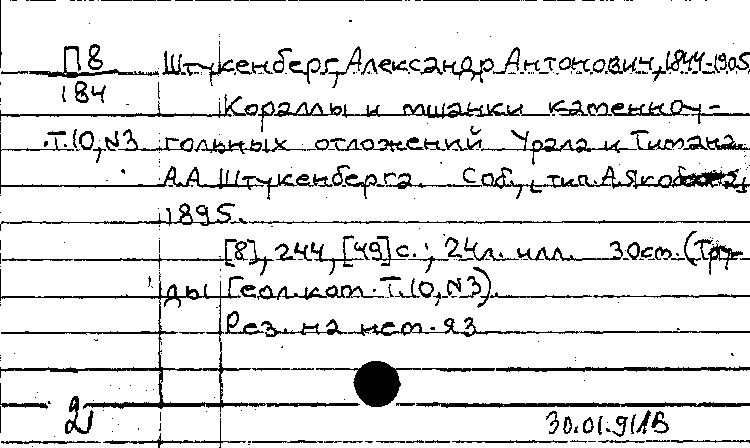 П8 Штукенберг, Александр Антонович, 1844-1905
184
Кораллы и мшанки каменноу-
Т.10, N3 гольных отложений Урала и Тимана.
А.А Штукенберга. Спб., тип. А. Якобсона,
1895.
[8], 244, [49] с.; 24л. илл. 30см. (Тру-
ды Геол. ком. Т.10, N3).
Рез. на нем. яз
2
30.01.91 АВ